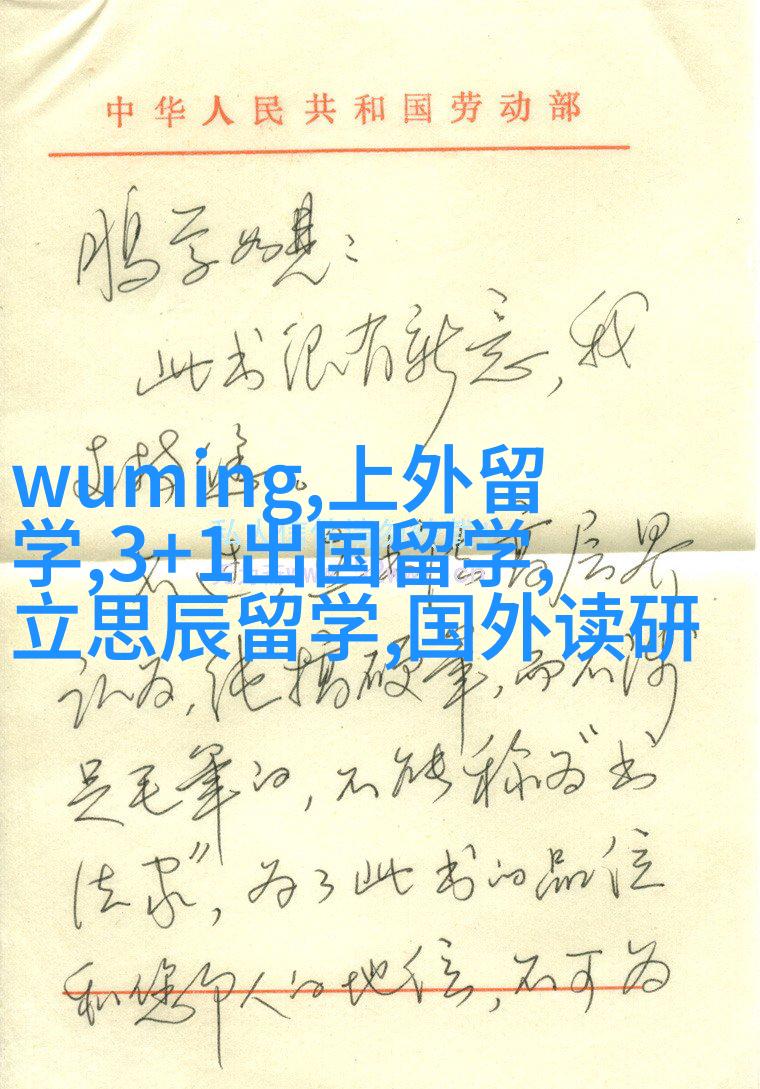 中华人民共和国劳动部
鹏学如晤：
此书很有新意,我
支持您。
wuming,上外留
学,3+1出国留学,
立思辰留学,国外读研
认为,纯搞硬笔,而不涉
足毛笔的,不能称为"书
法家",为了此书的品位
和您个人的地位,不可为